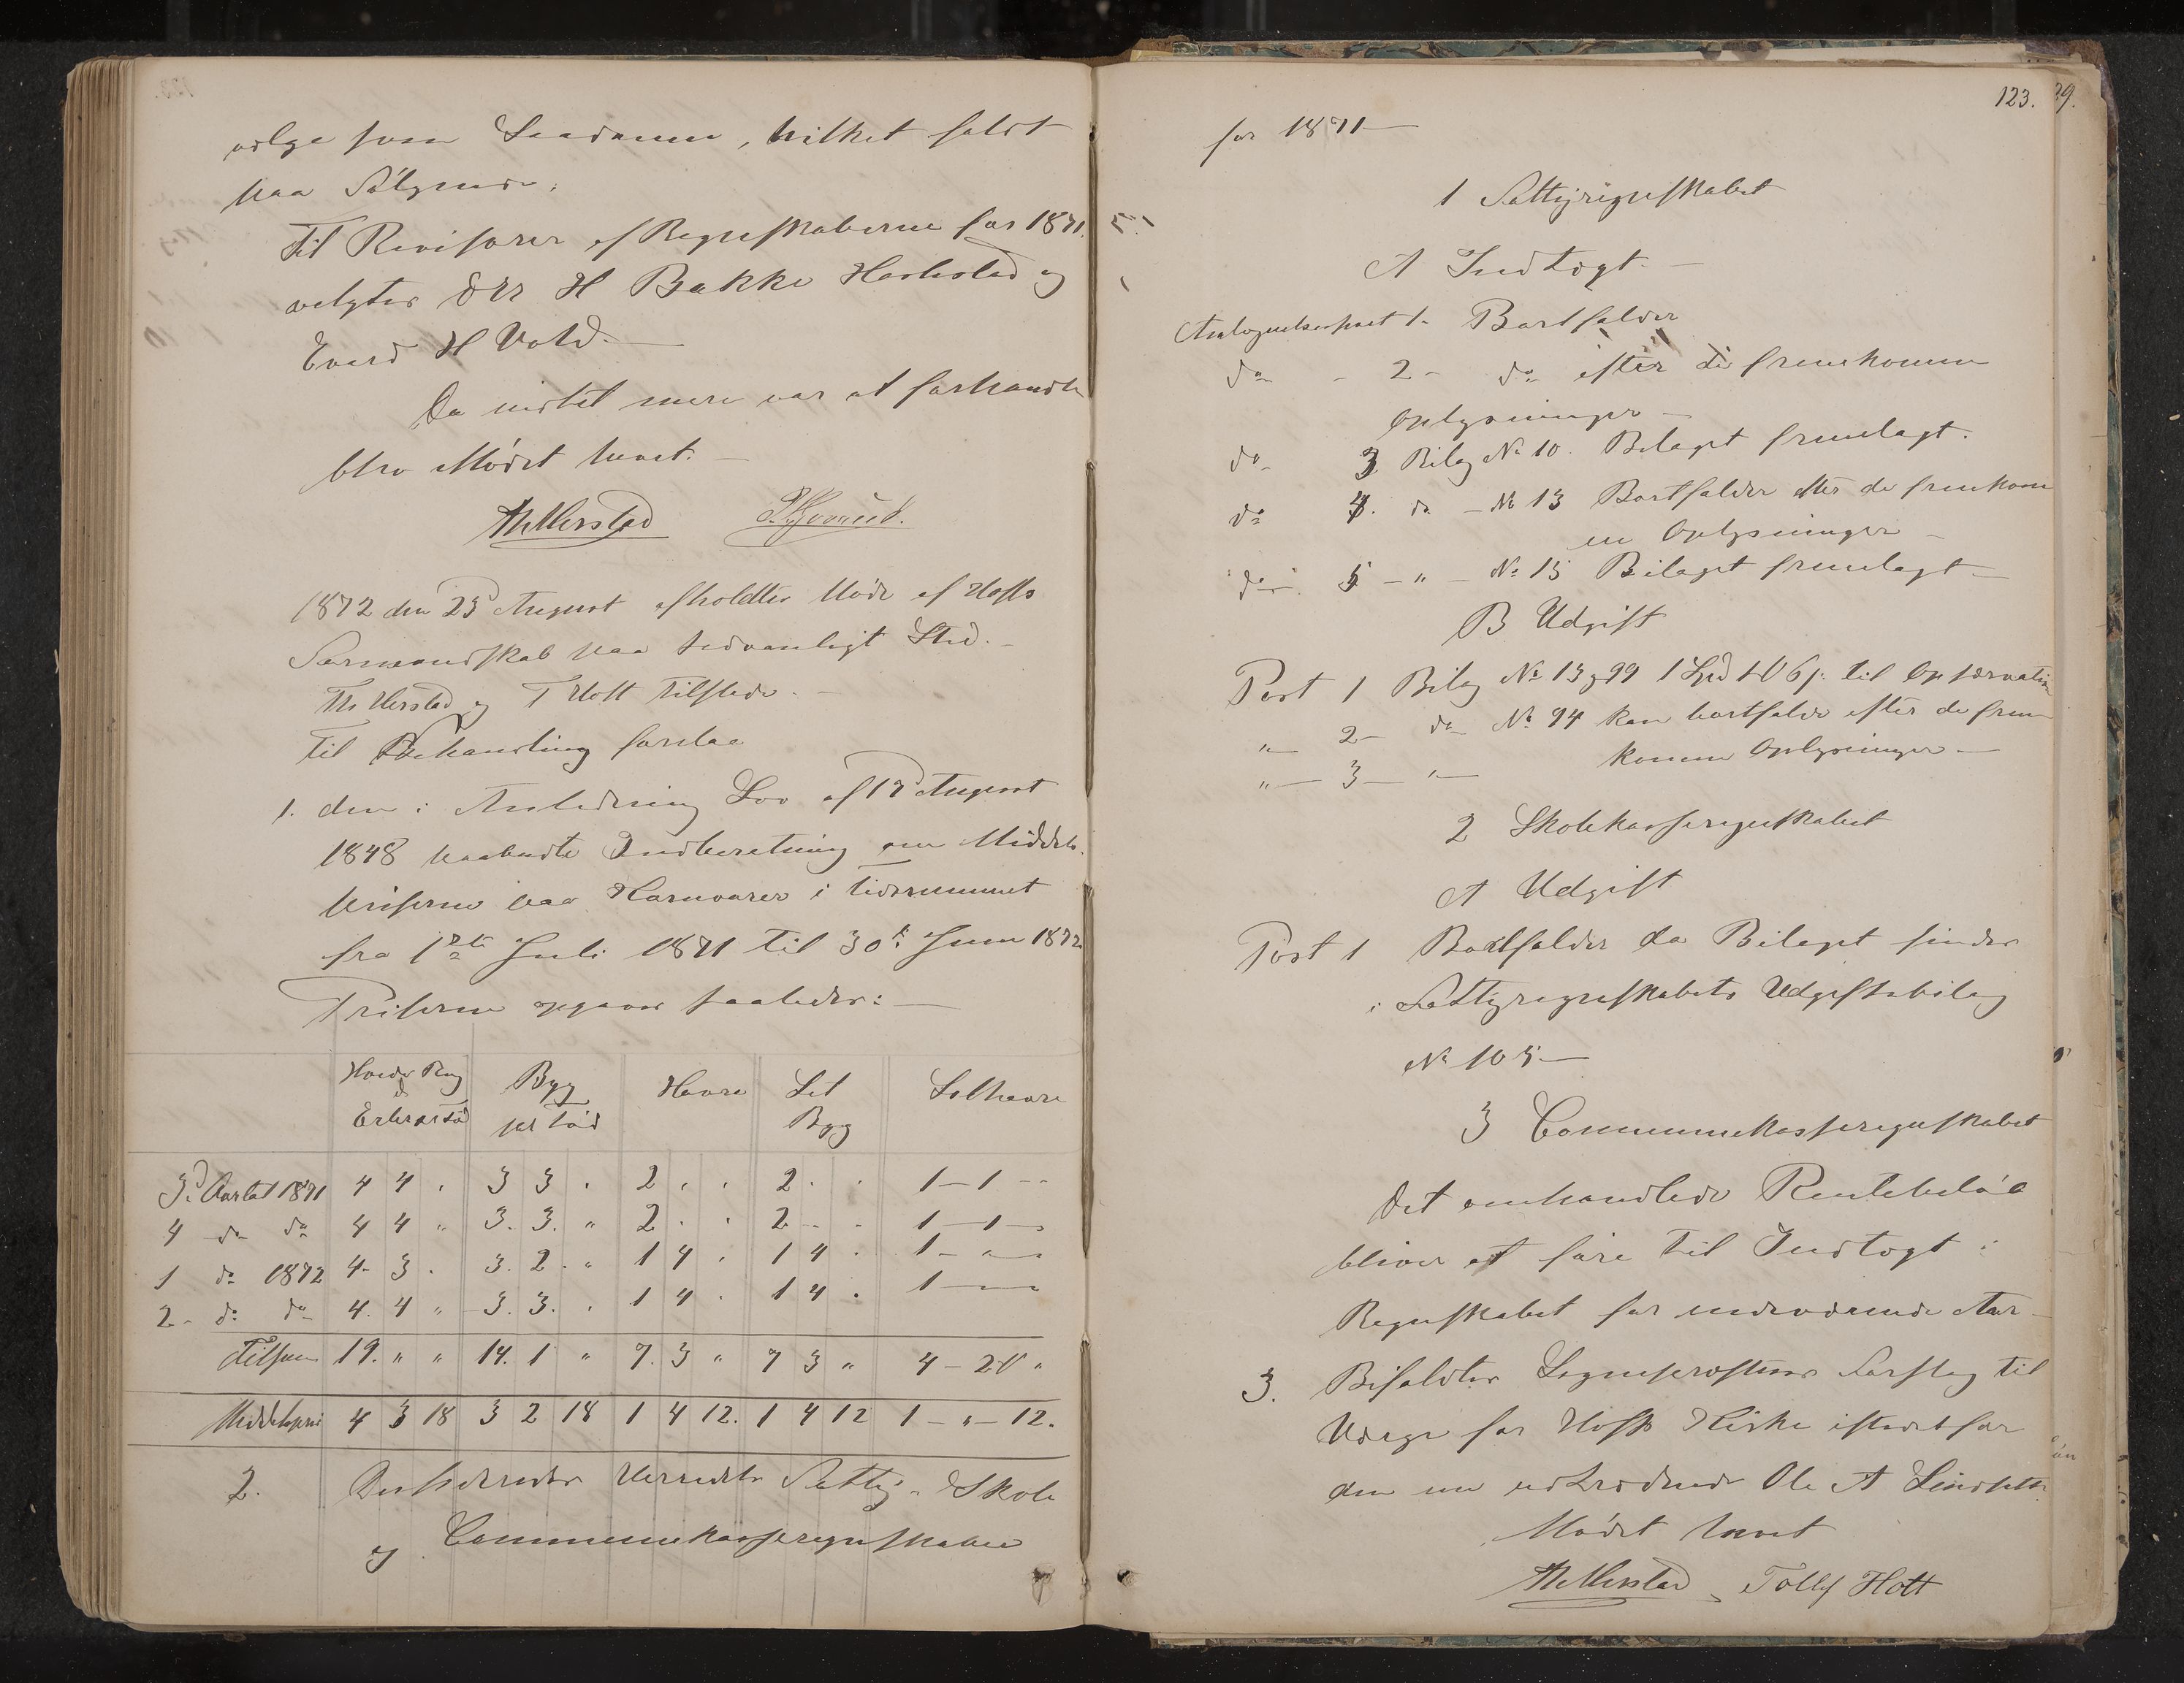 vælge som Saadanne, hvilket faldt
paa Følgende:
Til Revisorer af Regnskaberne for 1871
velgtes H Bakke Harkestad og
Evard H Vold.—
Da intet mere var at forhandle
blev Mødet hævet.—
1872 den 23d August afholdtes Møde af Hofs
Formandskab paa sedvanligt Sted.—
og T Hott tilstede.—
Til Behandling forelaa
1. den i Anledning Lov af August
1848 paabudte Indberetning om Middel-
priserne paa Kornvarer i Tidsrummet
fra 1ste Juli 1871 til 30te Juni 1872
Priserne opgaves saaledes:—
Hvede Rug
Erter pr Td
Byg
pr Tød
Havre
Let
Byg
Lethavre
3d Qvartal 1871 4 4 . 3 3 . 2 . . 2 . . 1–1 –
4 do do 4 4 " 3. 3. " 2 . . 2 . . 1–1–
1 do 1872 4. 3 . 3. 2. " 1 4 . 1 4 . 1–"–
2. do do 4. 4 " 3. 3. . 1 4 . 1 4 . 1
Tilsam 19. " " 14. 1 " 7. 3 " 7 3 " 4–2 "
Middelpris 4 3 18 3 2 18 1 4 12. 1 4 12 1–"–12.
2. Herredets Fattig- Skole
og Communekasseregnskaber
123.
29.
for 1871—
1 Fattigregnskabet
A Indtægt.—
Antegnelsespost 1. Bortfalder
do – 2 – do efter de fremkomne
Oplysninger –
do 3. Bilag No 10. Bilaget fremlagt.
do 4. do – No 13 Bortfalder efter de fremkom
ne Oplysninger –
do 5 – " – No 15 Bilaget fremlagt –
B Udgift
Post 1 Bilag No 13 og 99 1 Spd til Observation
"– 2 – do No 94 kan bortfalde efter de frem
"– 3 – "– komne Oplysninger —
2 Skolekasseregnskabet
A Udgift
Post 1 Bortfalder da Bilaget findes
i Fattigregnskabets Udgiftsbilag
No 105—
3 Communekasseregnskabet
Det omhandlede Rentebeløb
bliver at føre til Indtægt i
Regnskabet for indeværende Aar –
3. Bifaldtes Sogneprestens Forslag til
Værge for Hofs Kirke istedetfor
den nu udtrædende Ole A
Mødet hævet
Tollef Hott